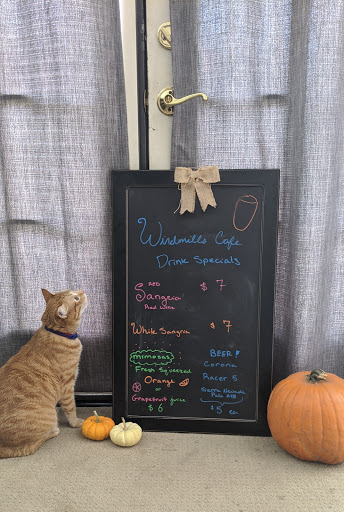 Windmills Cafe
Drink Specials
RED
Sangria $7
Red Wine
White Sangria $7
mimosas
Fresh Squeezed
Orange
or
Grapefruit juice
$6
BEER!
Corona
Racer 5
Sierra Nevada
Pale Ale
$5 ea